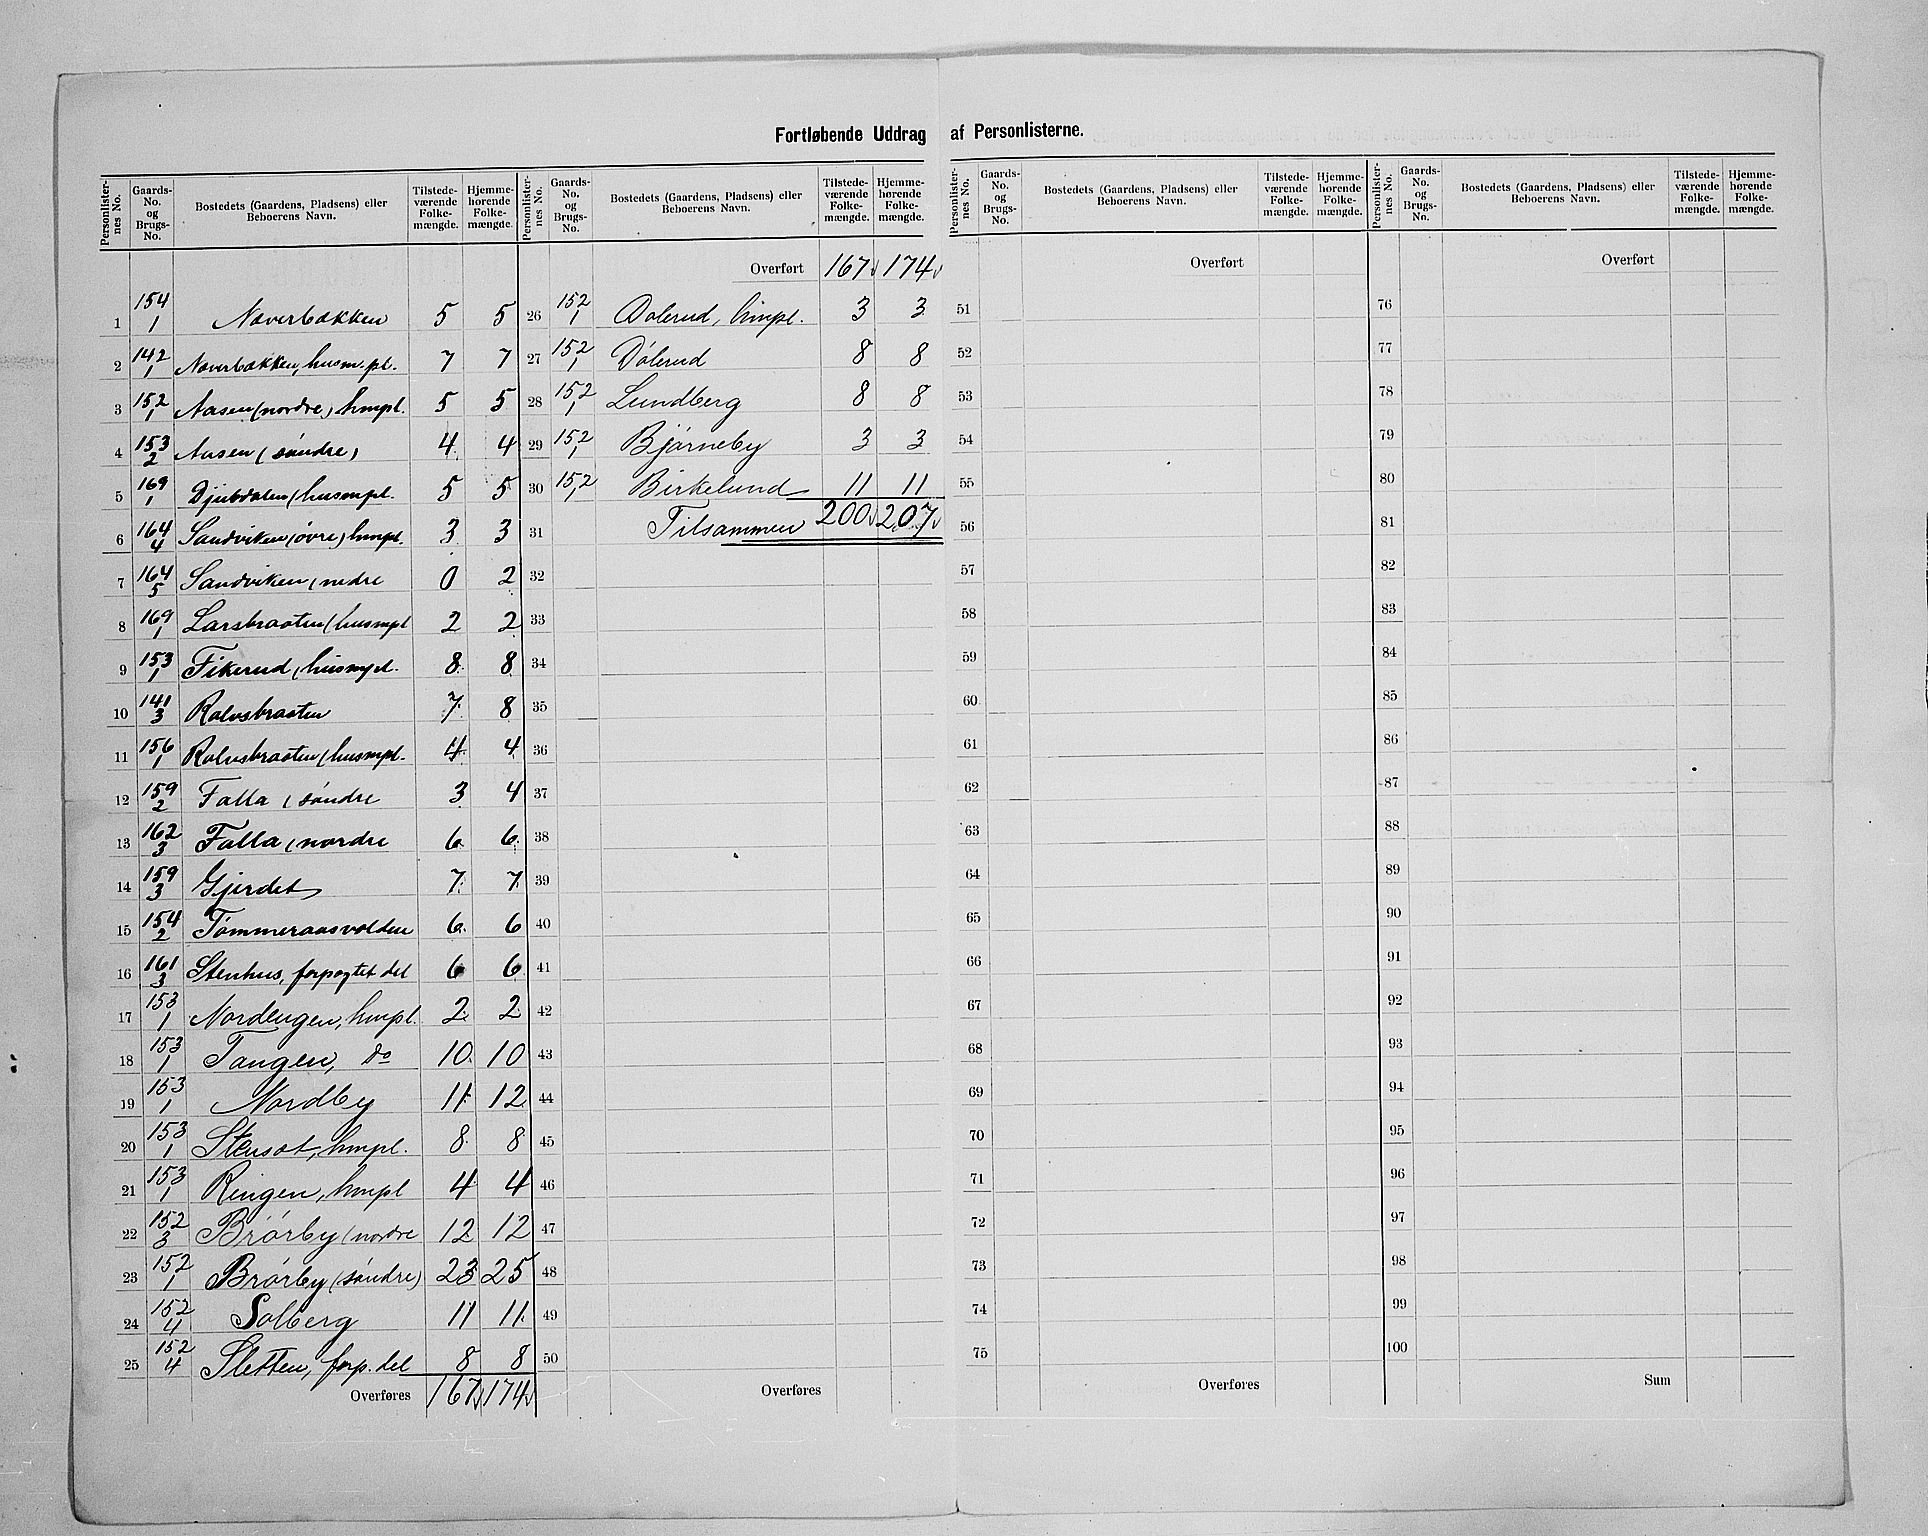 Fortløbende Uddrag af Personlisterne.
Personlister-nes No. | Gaards-No. og Brugs-No. | Bostedets (Gaardens, Pladsens) eller Beboerens Navn. | Tilstede-værende Folke-mængde. | Hjemme-hørende Folke-mængde.
1 154/1 Naverbakken 5 5
2 142/1 Naverbakken, husm.pl. 7 7
3 152/1 Aasen (nordre) hmpl. 5 5
4 153/2 Aasen (søndre) 4 4
5 169/1 Djubdalen (husmpl. 5 5
6 164/4 Sandviken (øvre) hmpl. 3 3
7 164/5 Sandviken (nedre 0 2
8 169/1 Larsbraaten (husmpl 2 2
9 153/1 Fikerud (husmpl. 8 8
10 141/3 Rolvsbraaten 7 8
11 156/1 Rolvsbraaten (husmpl. 4 4
12 159/2 Falla (søndre 3 4
13 162/3 Falla (nordre 6 6
14 159/3 Gjerdet 7 7
15 154/2 Tømmeraasvolden 6 6
16 161/3 Stenhus, forpagtet del 6 6
17 153/1 Nordengen, hmpl. 2 2
18 153/1 Tangen, do 10 10
19 153/1 Nordby 11 12
20 153/1 Stensæt, hmpl. 8 8
21 153/1 Ringen, hmpl 4 4
22 152/3 Brørby (nordre 12 12
23 152/1 Brørby (søndre) 23 25
24 152/4 Solberg 11 11
25 152/4 Sletten, forp. del 8 8
Overføres 167 174
Personlister-nes No. | Gaards-No. og Brugs-No. | Bostedets (Gaardens, Pladsens) eller Beboerens Navn. | Tilstede-værende Folke-mængde. | Hjemme-hørende Folke-mængde.
Overført 167 174
26 152/1 Dølerud, hmpl. 3 3
27 152/1 Dølerud 8 8
28 152/1 Lundberg 8 8
29 152/1 Bjørneby 3 3
30 152/1 Birkelund 11 11
31 Tilsammen 200 207
32
33
34
35
36
37
38
39
40
41
42
43
44
45
46
47
48
49
50
Overføres
Personlister-nes No. | Gaards-No. og Brugs-No. | Bostedets (Gaardens, Pladsens) eller Beboerens Navn. | Tilstede-værende Folke-mængde. | Hjemme-hørende Folke-mængde.
Overført
51
52
53
54
55
56
57
58
59
60
61
62
63
64
65
66
67
68
69
70
71
72
73
74
75
Overføres
Personlister-nes No. | Gaards-No. og Brugs-No. | Bostedets (Gaardens, Pladsens) eller Beboerens Navn. | Tilstede-værende Folke-mængde. | Hjemme-hørende Folke-mængde.
Overført
76
77
78
79
80
81
82
83
84
85
86
87
88
89
90
91
92
93
94
95
96
97
98
99
100
Sum